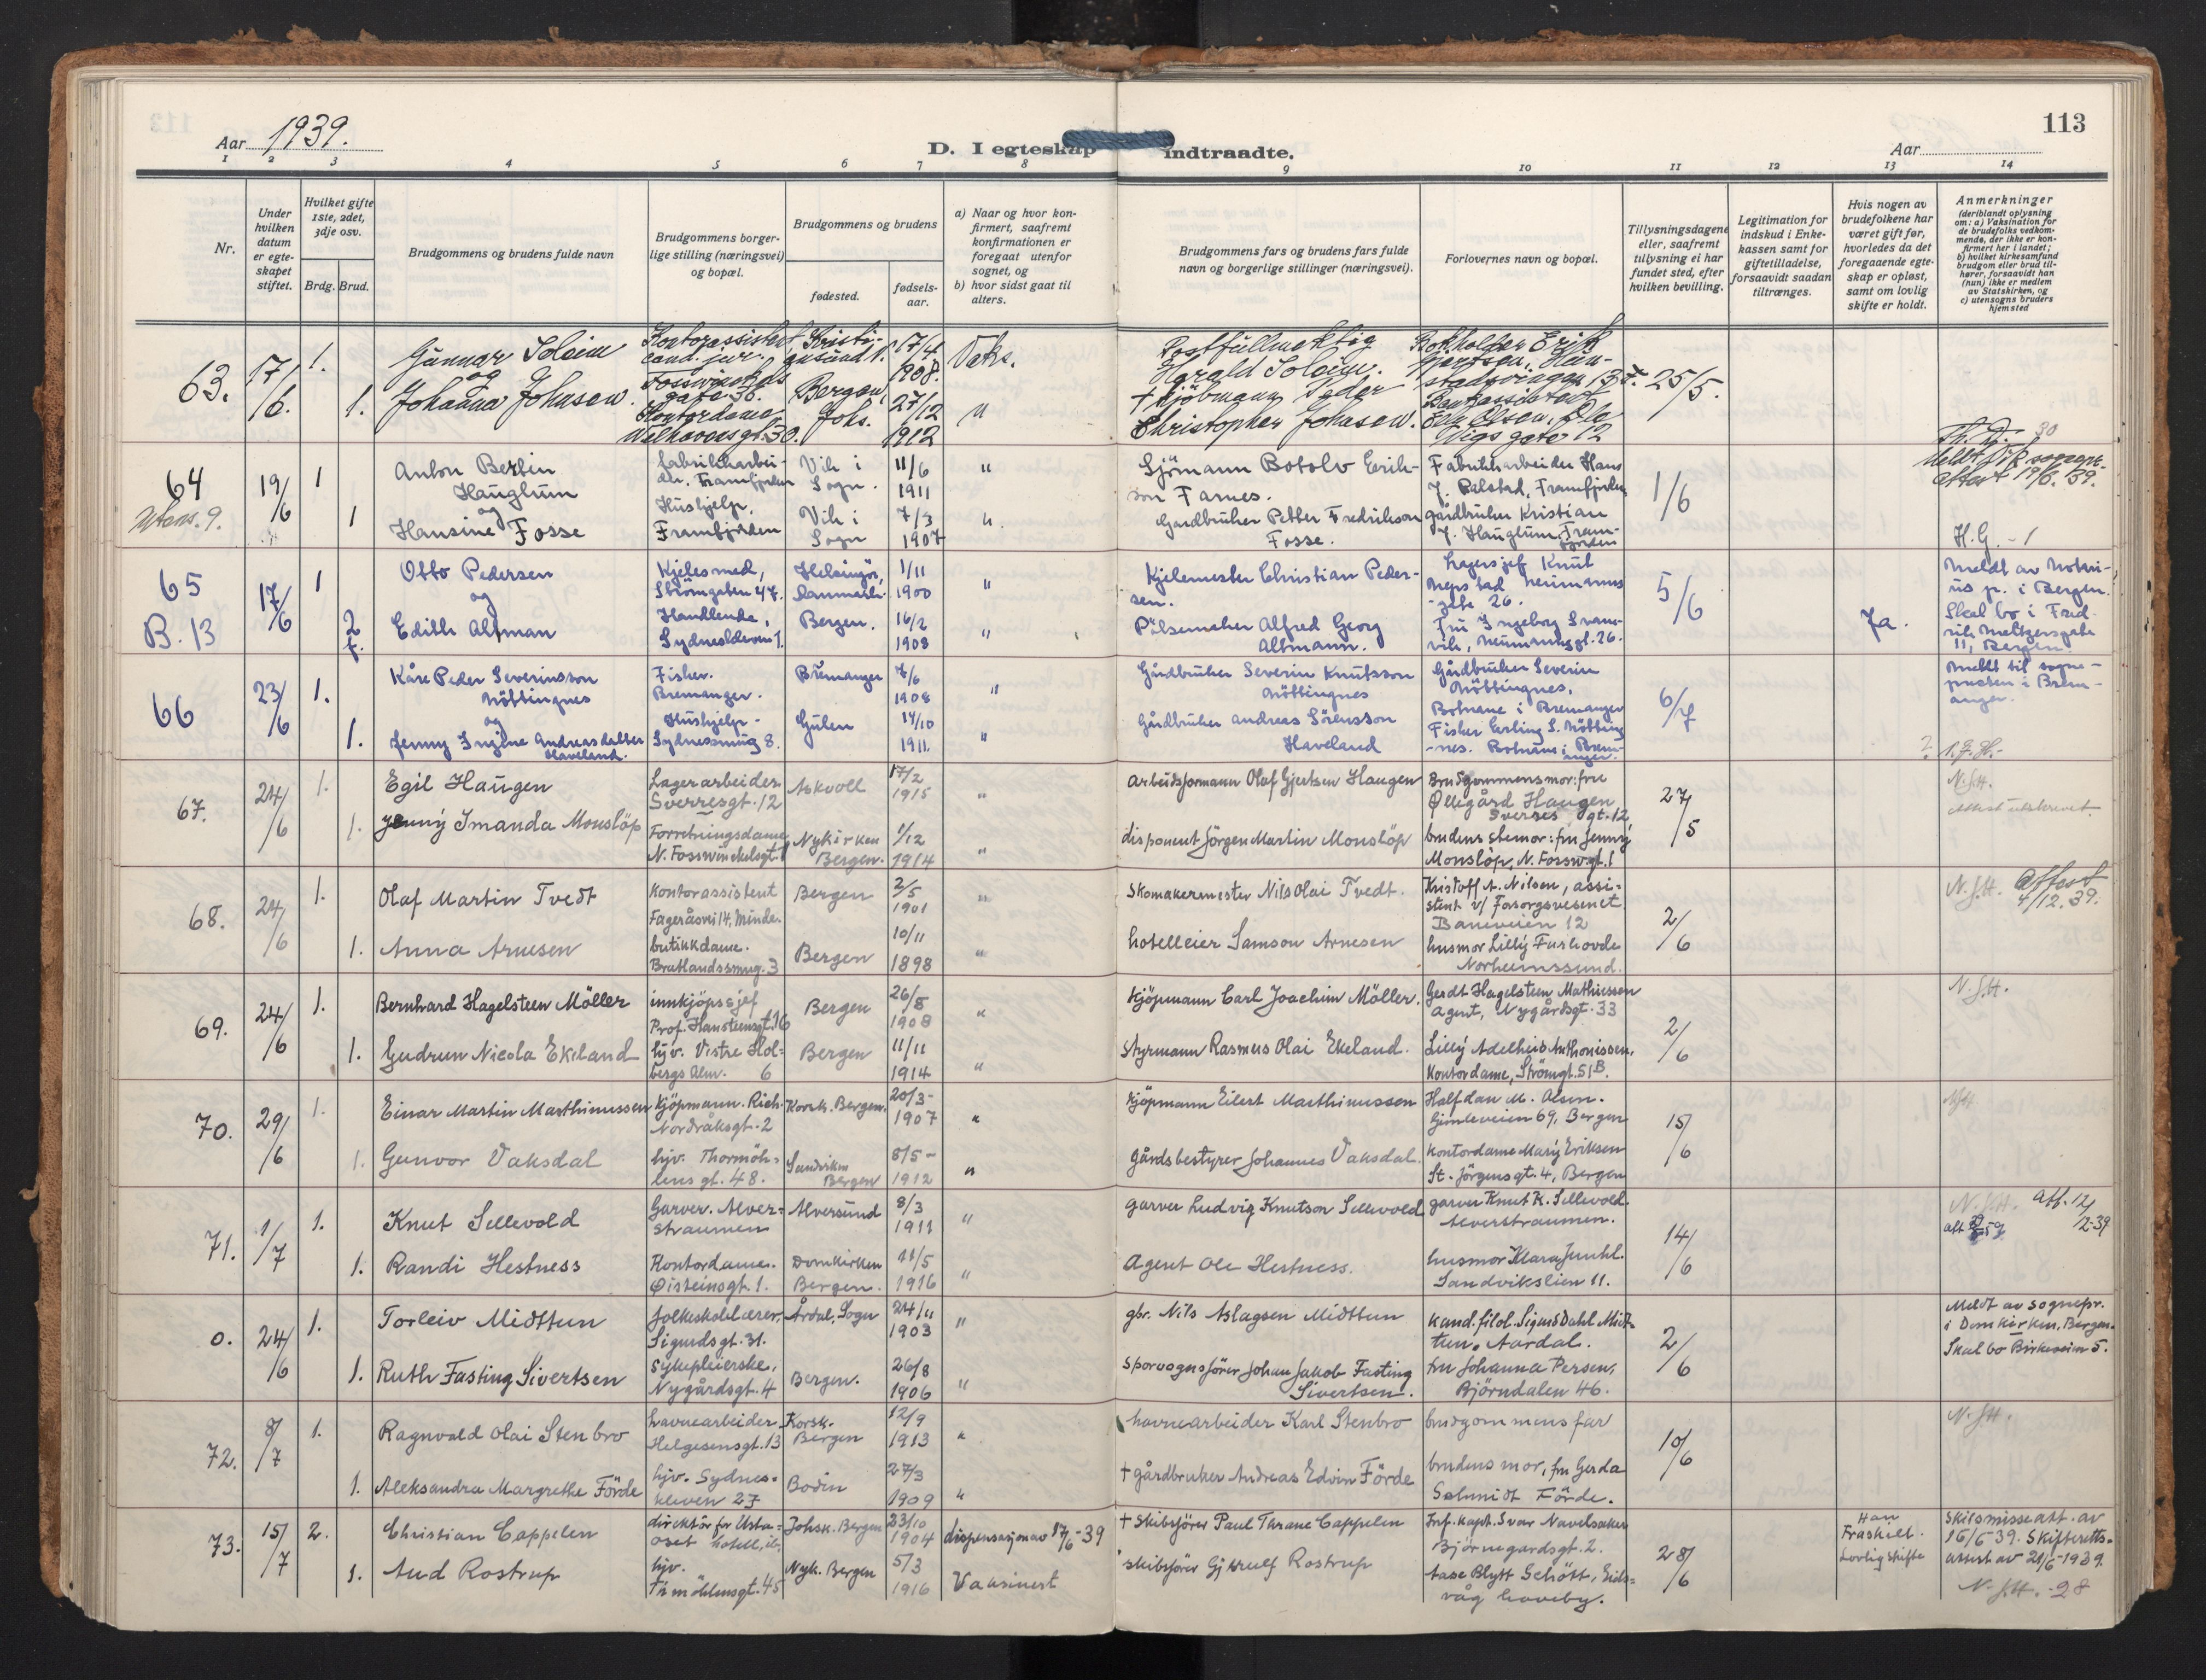 113
Aar 1939.
D. I egteskap indtraadte.
Aar
1 2 3 4 5 6 7 8 9 10 11 12 13 14
Nr.
Under hvilken datum er egteskapet stiftet.
Hvilket gifte 1ste, 2det, 3dje osv.
Brdg. Brud.
Brudgommens og brudens fulde navn
Brudgommens borgerlige stilling (næringsvei) og bopæl.
Brudgommens og brudens
fødested.
fødselsaar.
a) Naar og hvor konfirmert, saafremt konfirmationen er foregaat utenfor sognet, og
b) hvor sidst gaat til alters.
Brudgommens fars og brudens fars fulde navn og borgerlige stillinger (næringsvei).
Forlovernes navn og bopæl.
Tillysningsdagene eller, saafremt tillysning ei har fundet sted, efter hvilken bevilling.
Legitimation for indskud i Enkekassen samt for giftetilladelse, forsaavidt saadan tiltrænges.
Hvis nogen av brudefolkene har været gift før, hvorledes da det foregaaende egteskap er opløst, samt om lovlig skifte er holdt.
Anmerkninger
(deriblandt oplysning om: a) Vaksination for de brudefolks vedkommende, der ikke er konfirmert her i landet;
b) hvilket kirkesamfund brudgom eller brud tilhører, forsaavidt han (hun) ikke er medlem av Statskirken, og
c) utensogns bruders hjemsted
63. 17/6. 1. Gunnar Soleim
og
1. Johanna Johnsen.
Kontorassistent, cand. jur.
Fosswinckels gate 36.
Kontordame
Welhavensgt. 30.
Kristiansund N. 17/4 1908.
Bergen, Johs. 27/12 1912
Vaks.
"
Postfullmektig
Harald Soleim.
† Kjøbmann Peder
Christopher Johnsen.
Bokholder Erik
25/5.
64 19/6 1 Anton Bertin
Utens. 9. Hauglum
og
1 Hansine Fosse
Fabrikkarbeider, Framfjorden
Hushjelp, Framfjorden
Vik i Sogn. 11/6 1911
Vik i Sogn 7/3 1907
"
"
Sjömann Botolv Erikson Farnes.
Gardbruker Petter Fredrikson
Fosse.
Fabrikkarbeider Hans
J. Palstad, Framfjorden
gårdbruker Kristian
J. Hauglum, Framfjorden
1/6
Meldt Vik sognepr.
Attest 19/6. 39.
H.G. - 1
65 17/6 1 Otto Pedersen
B. 13 og
2 f. Edith Altman
Kjelesmed,
Strömgaten 47.
Handlende,
Helsingör, Danmark. 1/11 1900
Bergen. 16/2 1908
"
"
Kjelemester Christian Pedersen.
Pölsemaker Alfred Georg
Altmann.
Lagersjef Knut
Nepstad Neumannsgate 26.
Fru Ingeborg Svanvik, Neumannsgt. 26.
5/6
Ja.
Meldt av Notarius p. i Bergen.
Skal bo i Fredrik Meltzersgate
11, Bergen.
66 23/6 1. Kåre Peder Severinsson
Nöttingnes
og
1. Jenny Ingine Andreasdatter
Haveland.
Fisker.
Bremanger.
Hushjelp -
Sydnessmug 8.
Bremanger 7/6 1908
Gulen 14/10 1911.
"
"
Gårdbruker Severin Knutsson
Nöttingnes
Gårdbruker Andreas Sörensson
Haveland
Gårdbruker Severin
Nöttingnes,
Botnane i Bremanger
Fisker Erling S. Nöttingnes. Botnane i Bremanger.
6/7
Meldt til sognepresten i Bremanger.
67. 24/6 1. Egil Haugen
1. Jenny Imanda Monslöp
Lagerarbeider
Sverresgt. 12
Forretningsdame
N. Fosswinckelsgt. 1
Askvoll 17/2 1915
Nykirken Bergen. 1/12 1914
"
"
Arbeidsformann Olaf Gjertsen Haugen
disponent Jörgen Martin Monslöp
Brudgommens mor: fru
Øllegård Haugen
Sverresgt. 12
brudens stemor: fru Jenny
Monslöp, N. Fossw.gt. 1
27/5
N.J.H.
Attest utskrevet.
68. 24/6 1. Olaf Martin Tvedt
1. Anna Arnesen
Kontorassistent
Fageråsvei 14, Minde.
butikkdame.
Bratlandssmug. 3
Bergen 2/5 1901
Bergen 10/11 1898
"
"
Skomakermester Nils Olai Tvedt.
hotelleier Samson Arnesen
Kristoff A. Nilsen, assistent v/ Forsorgsvesenet
Baneveien 12
husmor Lilly Fuskovde
Norheimssund.
2/6
N.J.H. Attest
4/12. 39.
69. 24/6 1. Bernhard Hagelsteen Möller
1. Gudrun Nicola Ekeland
innkjöpssjef
Prof. Hansteensgt. 16
hjv. Vistre Holbergs Alm. 6
Bergen 26/8 1908
Bergen 11/11 1914
"
"
Kjöpmann Carl Joachim Möller.
Styrmann Rasmus Olai Ekeland.
Gerdt Hagelsteen Mathiessen
agent, Nygårdsgt. 33
Lilly Adelheid Anthonissen,
Kontordame, Strömgt. 51B.
2/6
N.J.H.
70. 29/6 1. Einar Martin Marthinussen
1. Gunvor Vaksdal
Kjöpmann. Rich.
Nordråksgt. 2
hjv. Thormöhlensgt. 48.
Korsk. Bergen. 20/3 - 1907
Sandviken Bergen 8/5 - 1912
"
"
Kjöpmann Eilert Marthinussen
Gårdsbestyrer Johannes Vaksdal.
Halfdan M. Olsen.
Gimleveien 69, Bergen
Kontordame Mary Eriksen
St. Jörgensgt. 4, Bergen
15/6
NJH.
71. 1/7 1. Knut Sellevold
1. Randi Hestness
Garver. Alverstraumen
Kontordame.
Øisteinsgt. 1.
Alversund 8/3 1911
Domkirken Bergen. 11/5 1916
"
"
garver Ludvig Knutson Sellevold
Agent Ole Hestness.
garver Knut K. Sellevold
Alverstraumen.
husmor Klara Juuhl.
Sandvikslien 11.
14/6
N.J.H. Att. 12/12-39
0. 24/6 1. Torleiv Midttun
1. Ruth Fasting Sivertsen
folkeskolelærer,
Sigurdsgt. 31.
sykepleierske,
Nygårdsgt. 4
Årdal, Sogn 24/11 1903
Bergen. 26/8 1906
"
"
gbr. Nils Aslagsen Midttun
Sporvognsförer Johan Jakob Fasting
Sivertsen.
kand. filol. Sigurd Dahl Midttun. Aardal.
fru Johanna Persen,
Björndalen 46.
2/6
Meldt av sognepr.
i Domkirken, Bergen.
Skal bo Birkeveien 5.
72. 8/7 1. Ragnvald Olai Stenbro
1. Aleksandra Margrethe Förde
havnearbeider
Helgesensgt. 13
hjv. Sydneskleven 27
Korsk. Bergen 12/9 1913
Bodin 27/3 1909
"
"
havnearbeider Karl Stenbro
† gårdbruker Andreas Edvin Förde
brudgommens far
brudens mor, fru Gerda
Schmidt Förde.
10/6
N.J.H.
73. 15/7 2. Christian Cappelen
1. Aud Rostrup
direktör for Ustaoset hotell,
hjv.
Tormöhlensgt. 45
Johsk. Bergen 23/10 1904
Nyk. Bergen 5/3 1916
dispensasjon av 17/6-39
Vaksinert
† Skibsförer Paul Thrane Cappelen
skibsförer Gjertulf Rostrup
Inf. kapt. Ivar Navelsaker
Bjørnegardsgt. 2.
Aase Blytt Schött, Eidsvåg haveby.
28/6
Han
Fraskilt.
Lovlig skifte
Skilsmisseatt. av
16/6 39. Skifterettsattest av 21/6-1939.
N.J.H. - 28